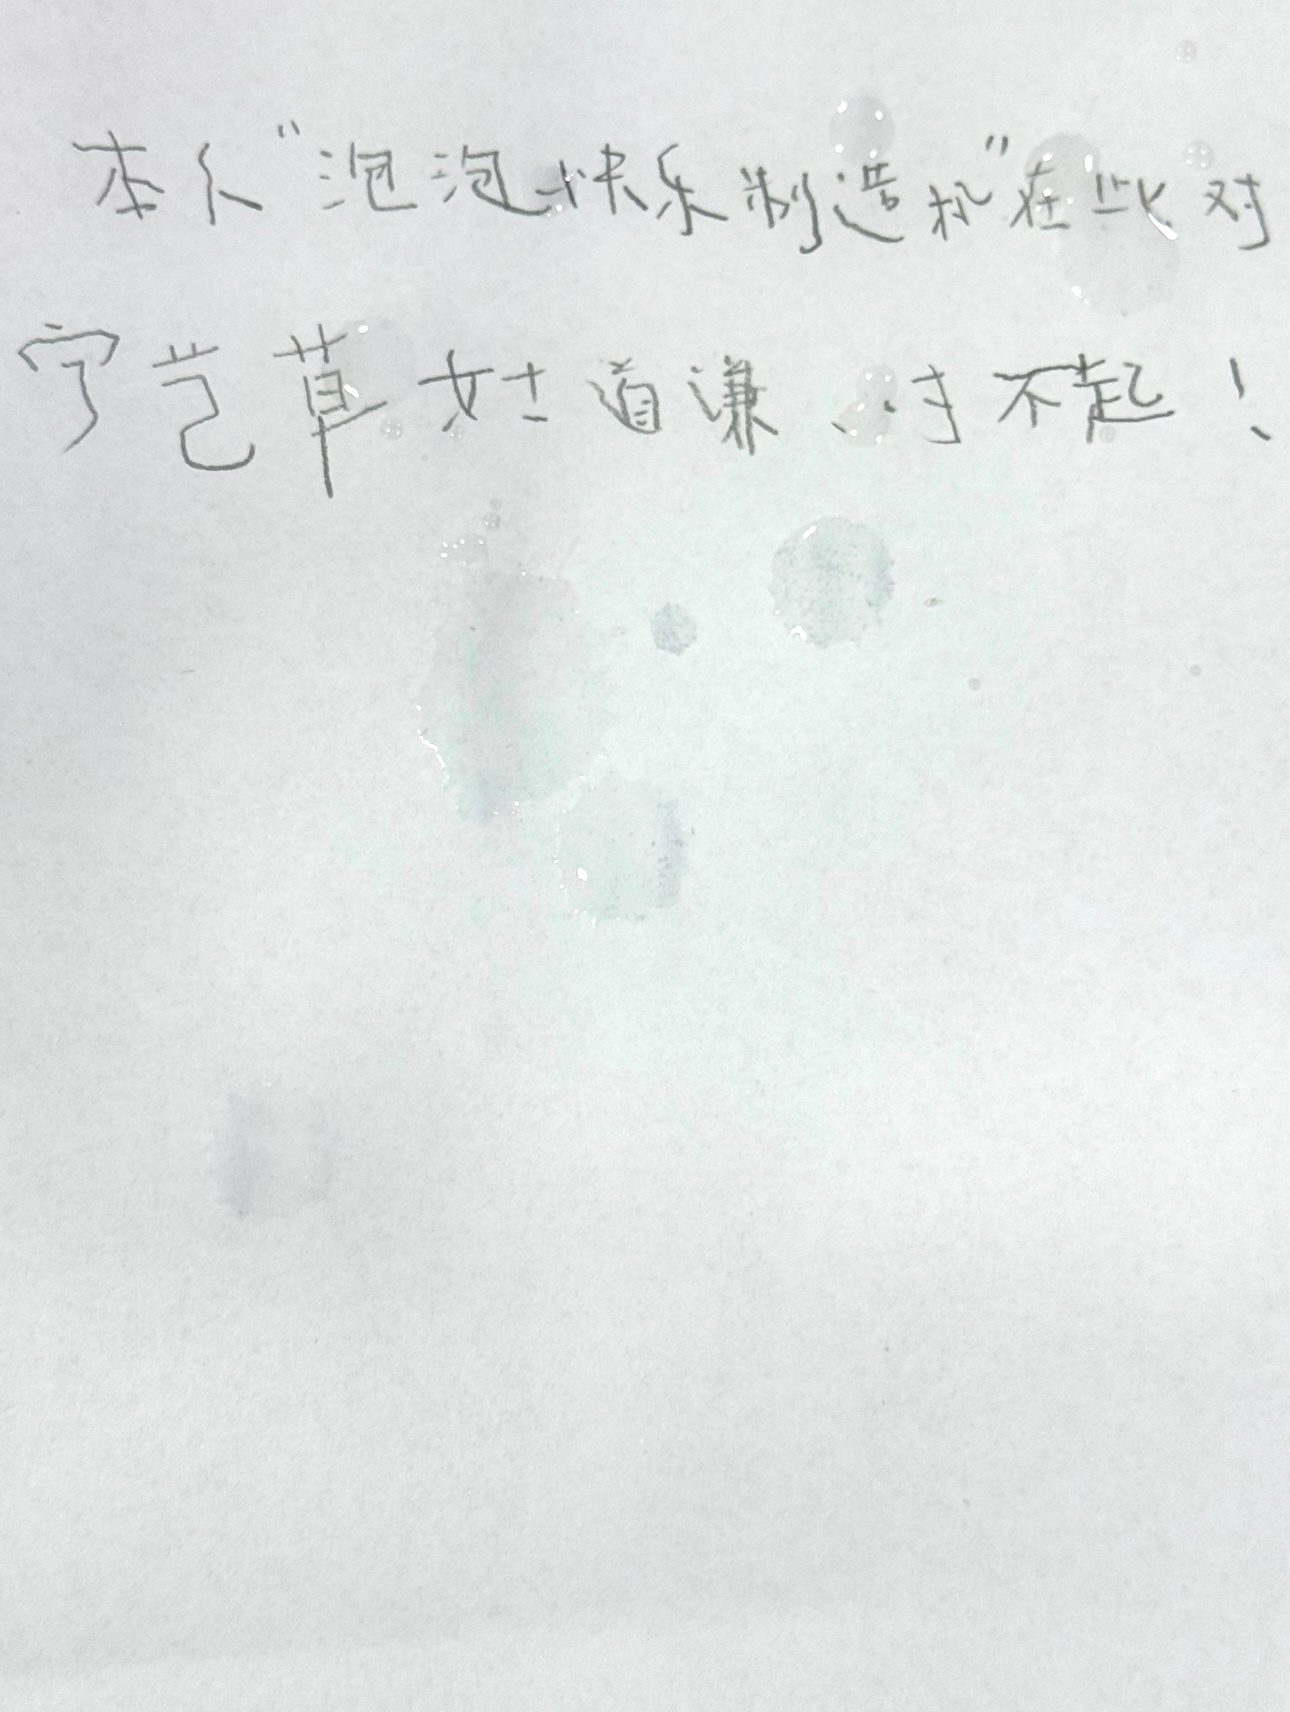 本人“泡泡快乐制造机”在此对
宁艺草女士道谦、对不起！